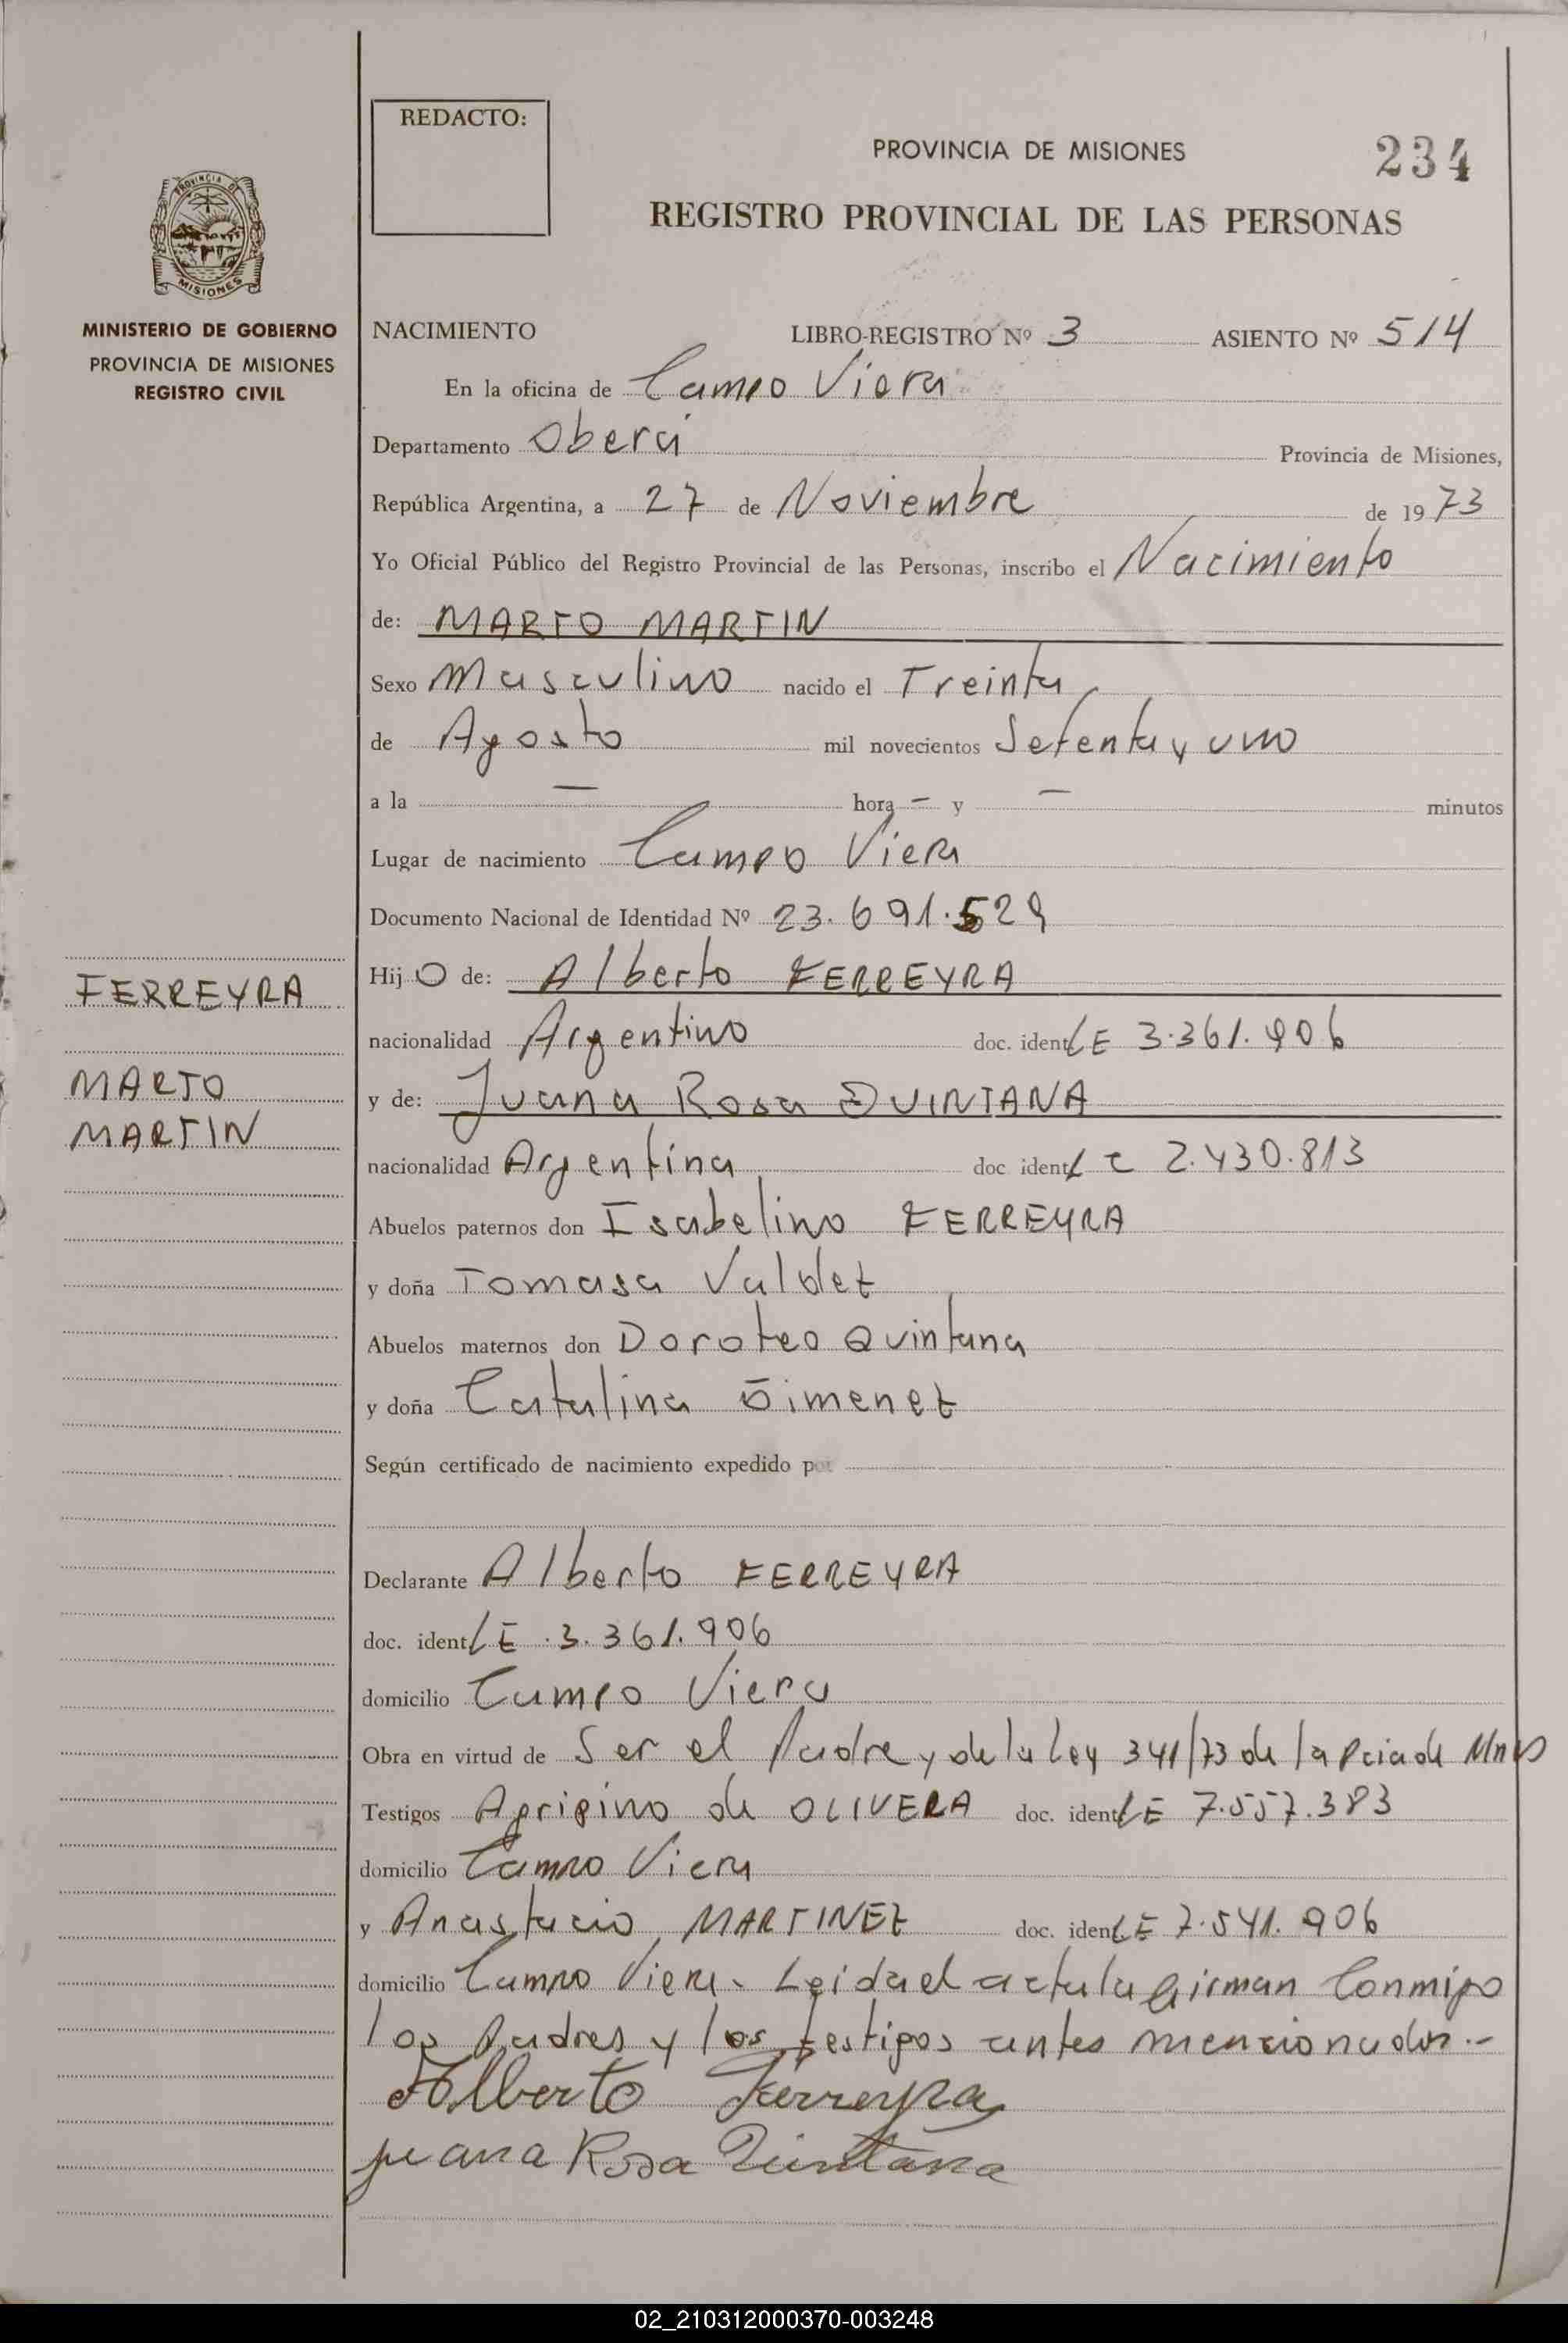 REDACTO:
PROVINCIA DE MISIONES
234
REGISTRO PROVINCIAL DE LAS PERSONAS
PROVINCIA DE
MISIONES
MINISTERIO DE GOBIERNO
PROVINCIA DE MISIONES
REGISTRO CIVIL
NACIMIENTO LIBRO-REGISTRO Nº 3 ASIENTO Nº 514
En la oficina de Campo Viera
Departamento Oberá Provincia de Misiones,
República Argentina, a 27 de Noviembre de 1973
Yo Oficial Público del Registro Provincial de las Personas, inscribo el Nacimiento
de: MARTO MARTIN
Sexo Masculino nacido el Treinta
de Agosto mil novecientos Setenta y uno
a la — hora — y — minutos
Lugar de nacimiento Campo Viera
Documento Nacional de Identidad Nº 23.691.529
Hijo de: Alberto FERREYRA
FERREYRA
nacionalidad Argentino doc. ident LE 3.361.906
MARTO
y de: Juana Rosa QUINTANA
MARTIN
nacionalidad Argentina doc ident L C 2.430.813
Abuelos paternos don Isabelino FERREYRA
y doña Tomasa Valdez
Abuelos maternos don Doroteo Quintana
y doña Catalina Gimenez
Según certificado de nacimiento expedido por
Declarante Alberto FERREYRA
doc. ident LE 3.361.906
domicilio Campo Viera
Obra en virtud de Ser el Padre y de la Ley 341/73 de la Pcia de Mnes
Testigos Agripino de OLIVERA doc. ident LE 7.557.383
domicilio Campo Viera
y Anastacio MARTINEZ doc. ident LE 7.541.906
domicilio Campo Viera. Leida el acta la firman Conmigo
los Padres y los testigos antes mencionados.-
Alberto Ferreyra
juana Rosa Quintana
02_210312000370-003248